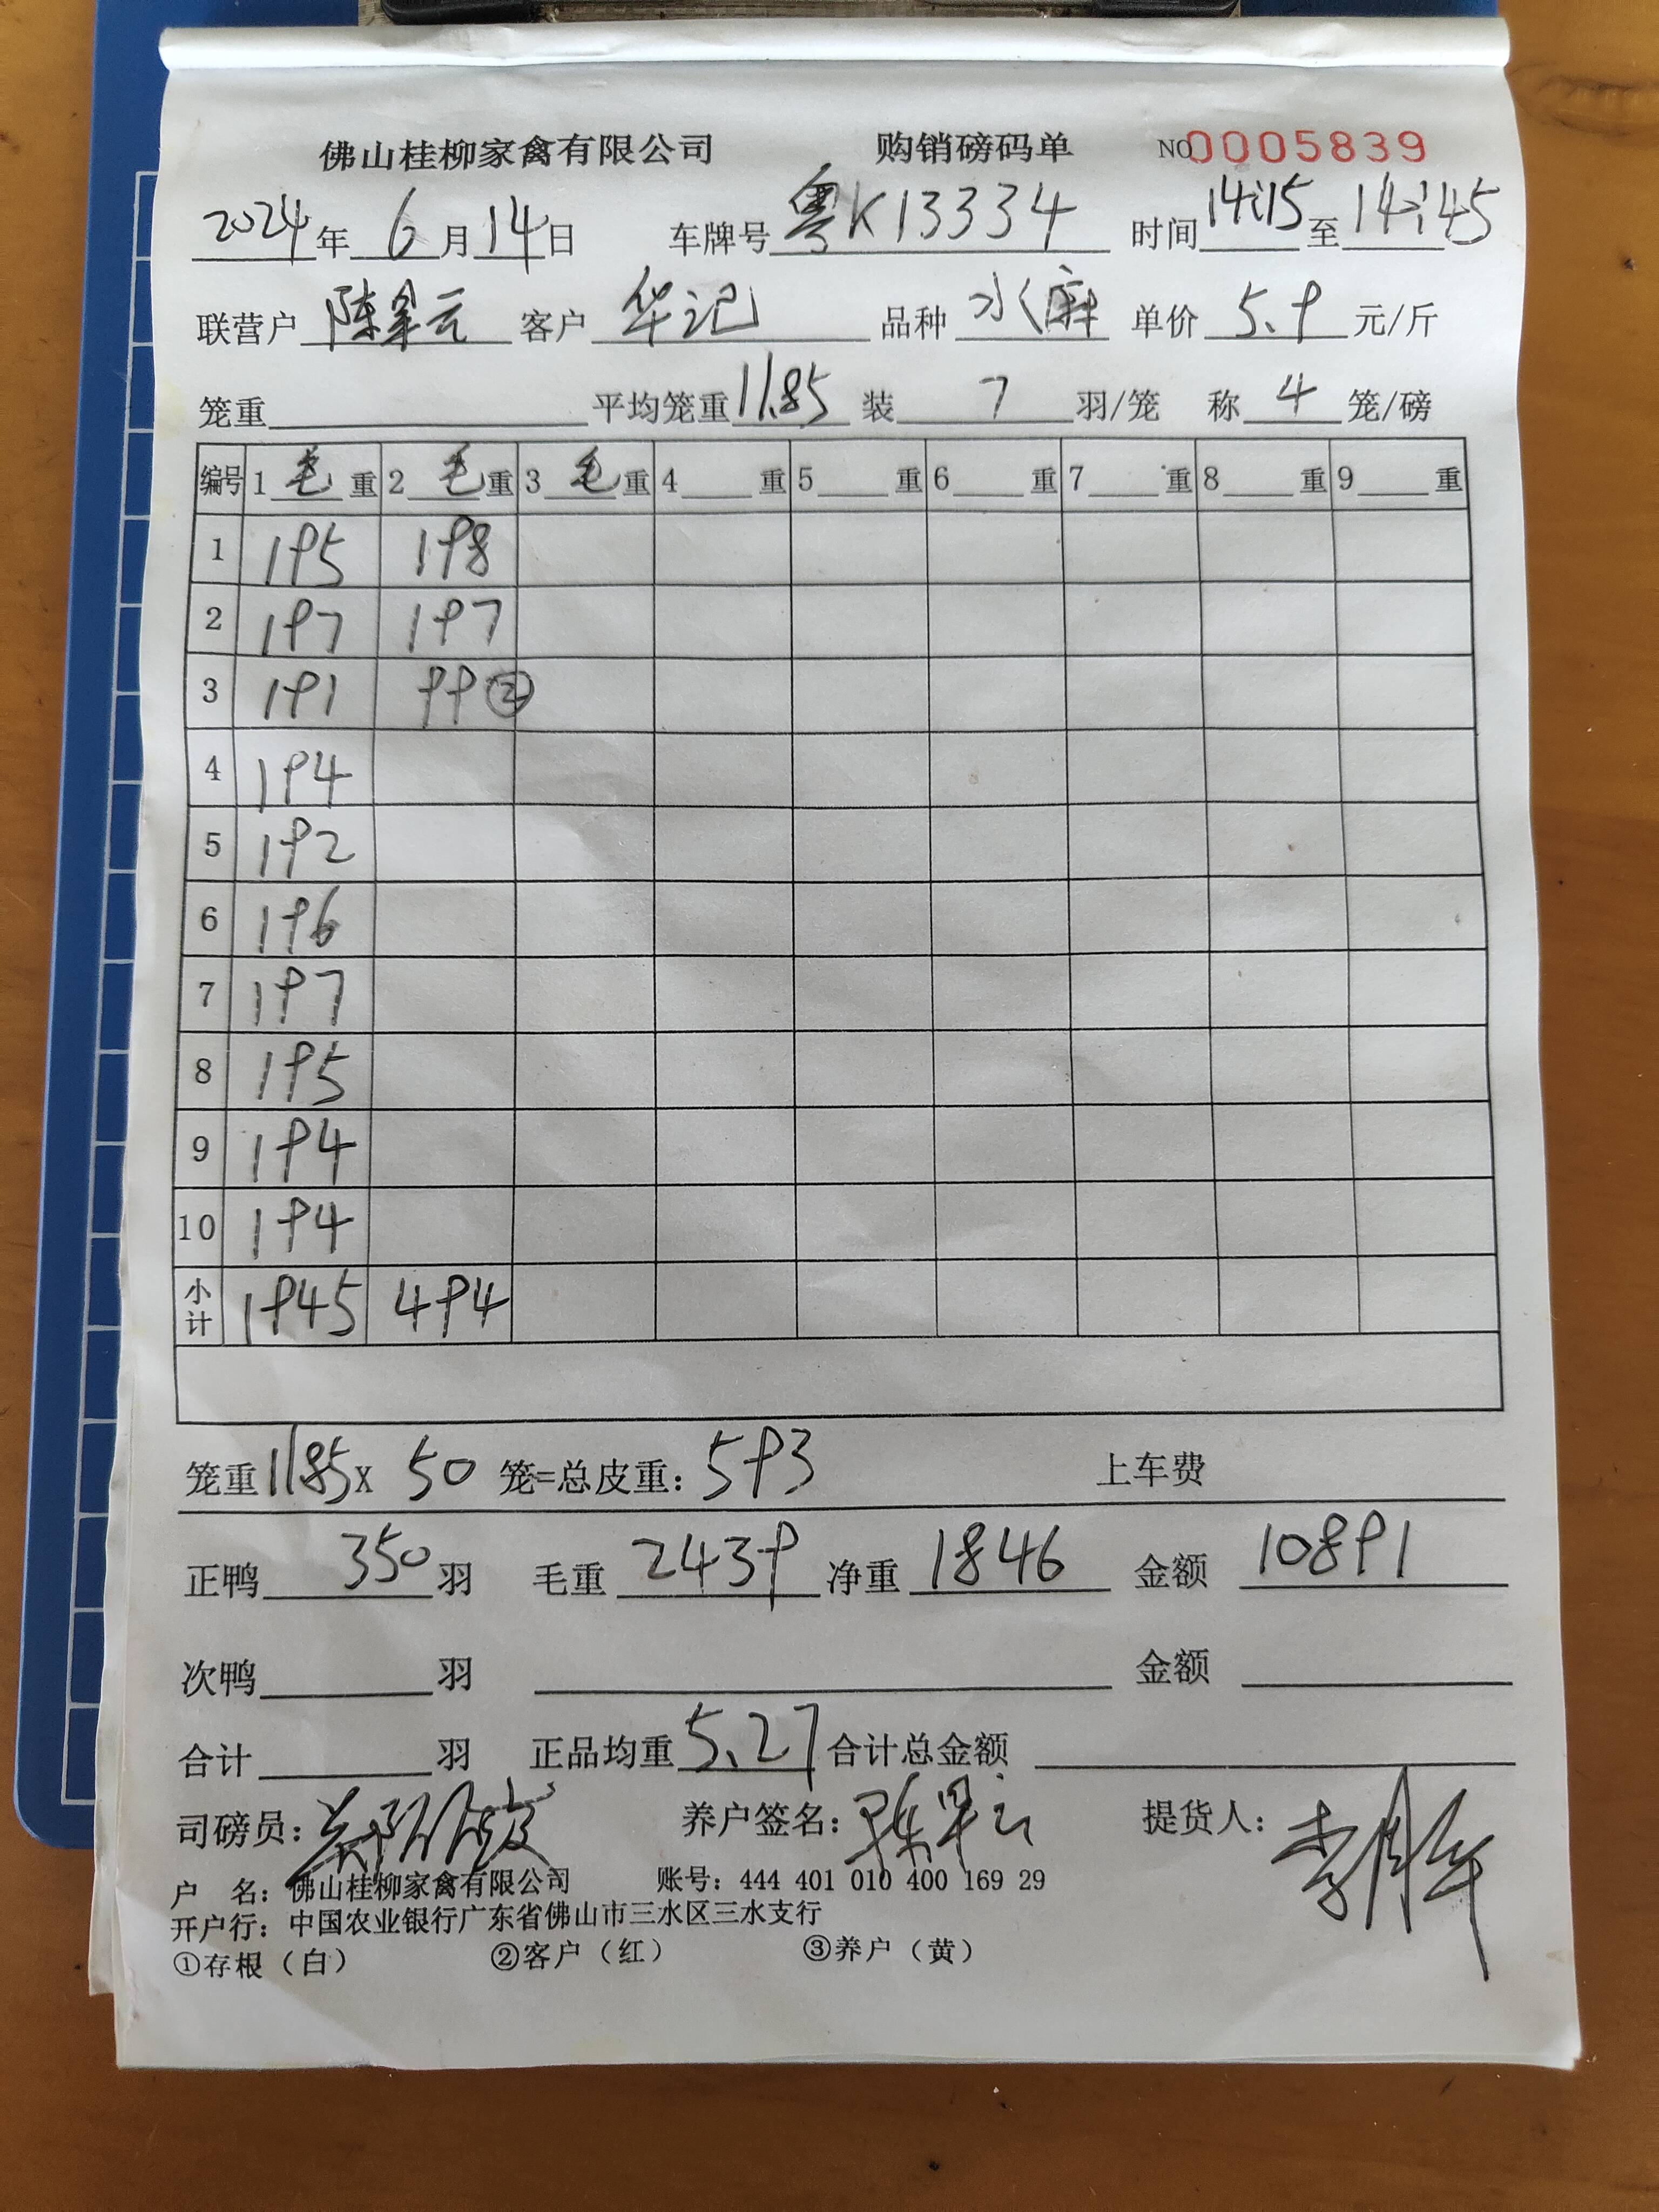 佛山桂柳家禽有限公司 购销磅码单 NO 0005839
2024年 6月14日 车牌号 粤K13334 时间 14:15 至 14:45
联营户 陈杲云 客户 华记 品种 水麻 单价 5.9 元/斤
笼重 平均笼重 11.85 装 7 羽/笼 称 4 笼/磅
编号 1 毛 重 2 毛 重 3 毛 重 4 重 5 重 6 重 7 重 8 重 9 重
1 195 198
2 197 197
3 191 99 ②
4 194
5 192
6 196
7 197
8 195
9 194
10 194
小计 1945 494
笼重 11.85 X 50 笼=总皮重: 593 上车费
正鸭 350 羽 毛重 2439 净重 1846 金额 10891
次鸭 羽 金额
合计 羽 正品均重 5.27 合计总金额
司磅员: 养户签名: 提货人:
户 名: 佛山桂柳家禽有限公司 账号: 444 401 010 400 169 29
开户行: 中国农业银行广东省佛山市三水区三水支行
①存根（白） ②客户（红） ③养户（黄）